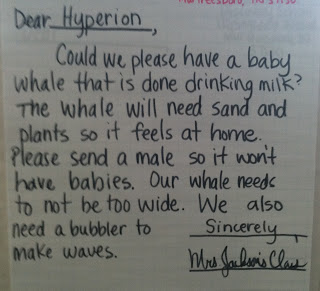 Dear Hyperion,
Could we please have a baby
whale that is done drinking milk?
The whale will need sand and
plants so it feels at home.
Please send a male so it won't
have babies. Our whale needs
to not be too wide. We also
need a bubbler to
make waves.
Sincerely,
Mrs. Jackson's Class